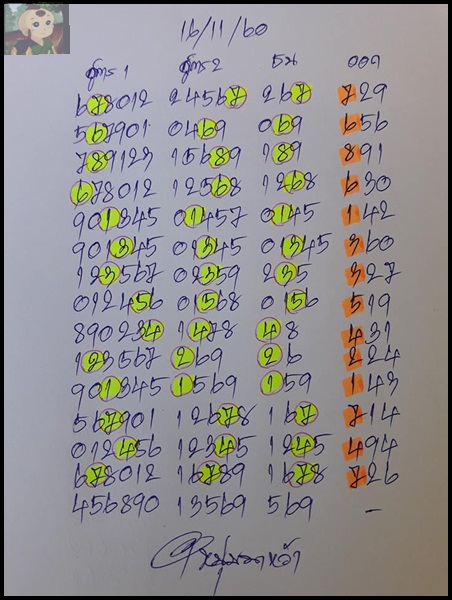 16/11/60
สูตร 1 สูตร 2 รวม ออก
678012 24567 267 729
567901 0469 069 656
789123 15689 189 891
678012 12568 1268 630
901345 01457 0145 142
901345 01345 01345 360
123567 02359 235 327
012456 01568 0156 519
890234 1478 48 431
123567 269 26 224
901345 1569 159 143
567901 12678 167 714
012456 12345 1245 494
678012 16789 1678 726
456890 13569 569 -